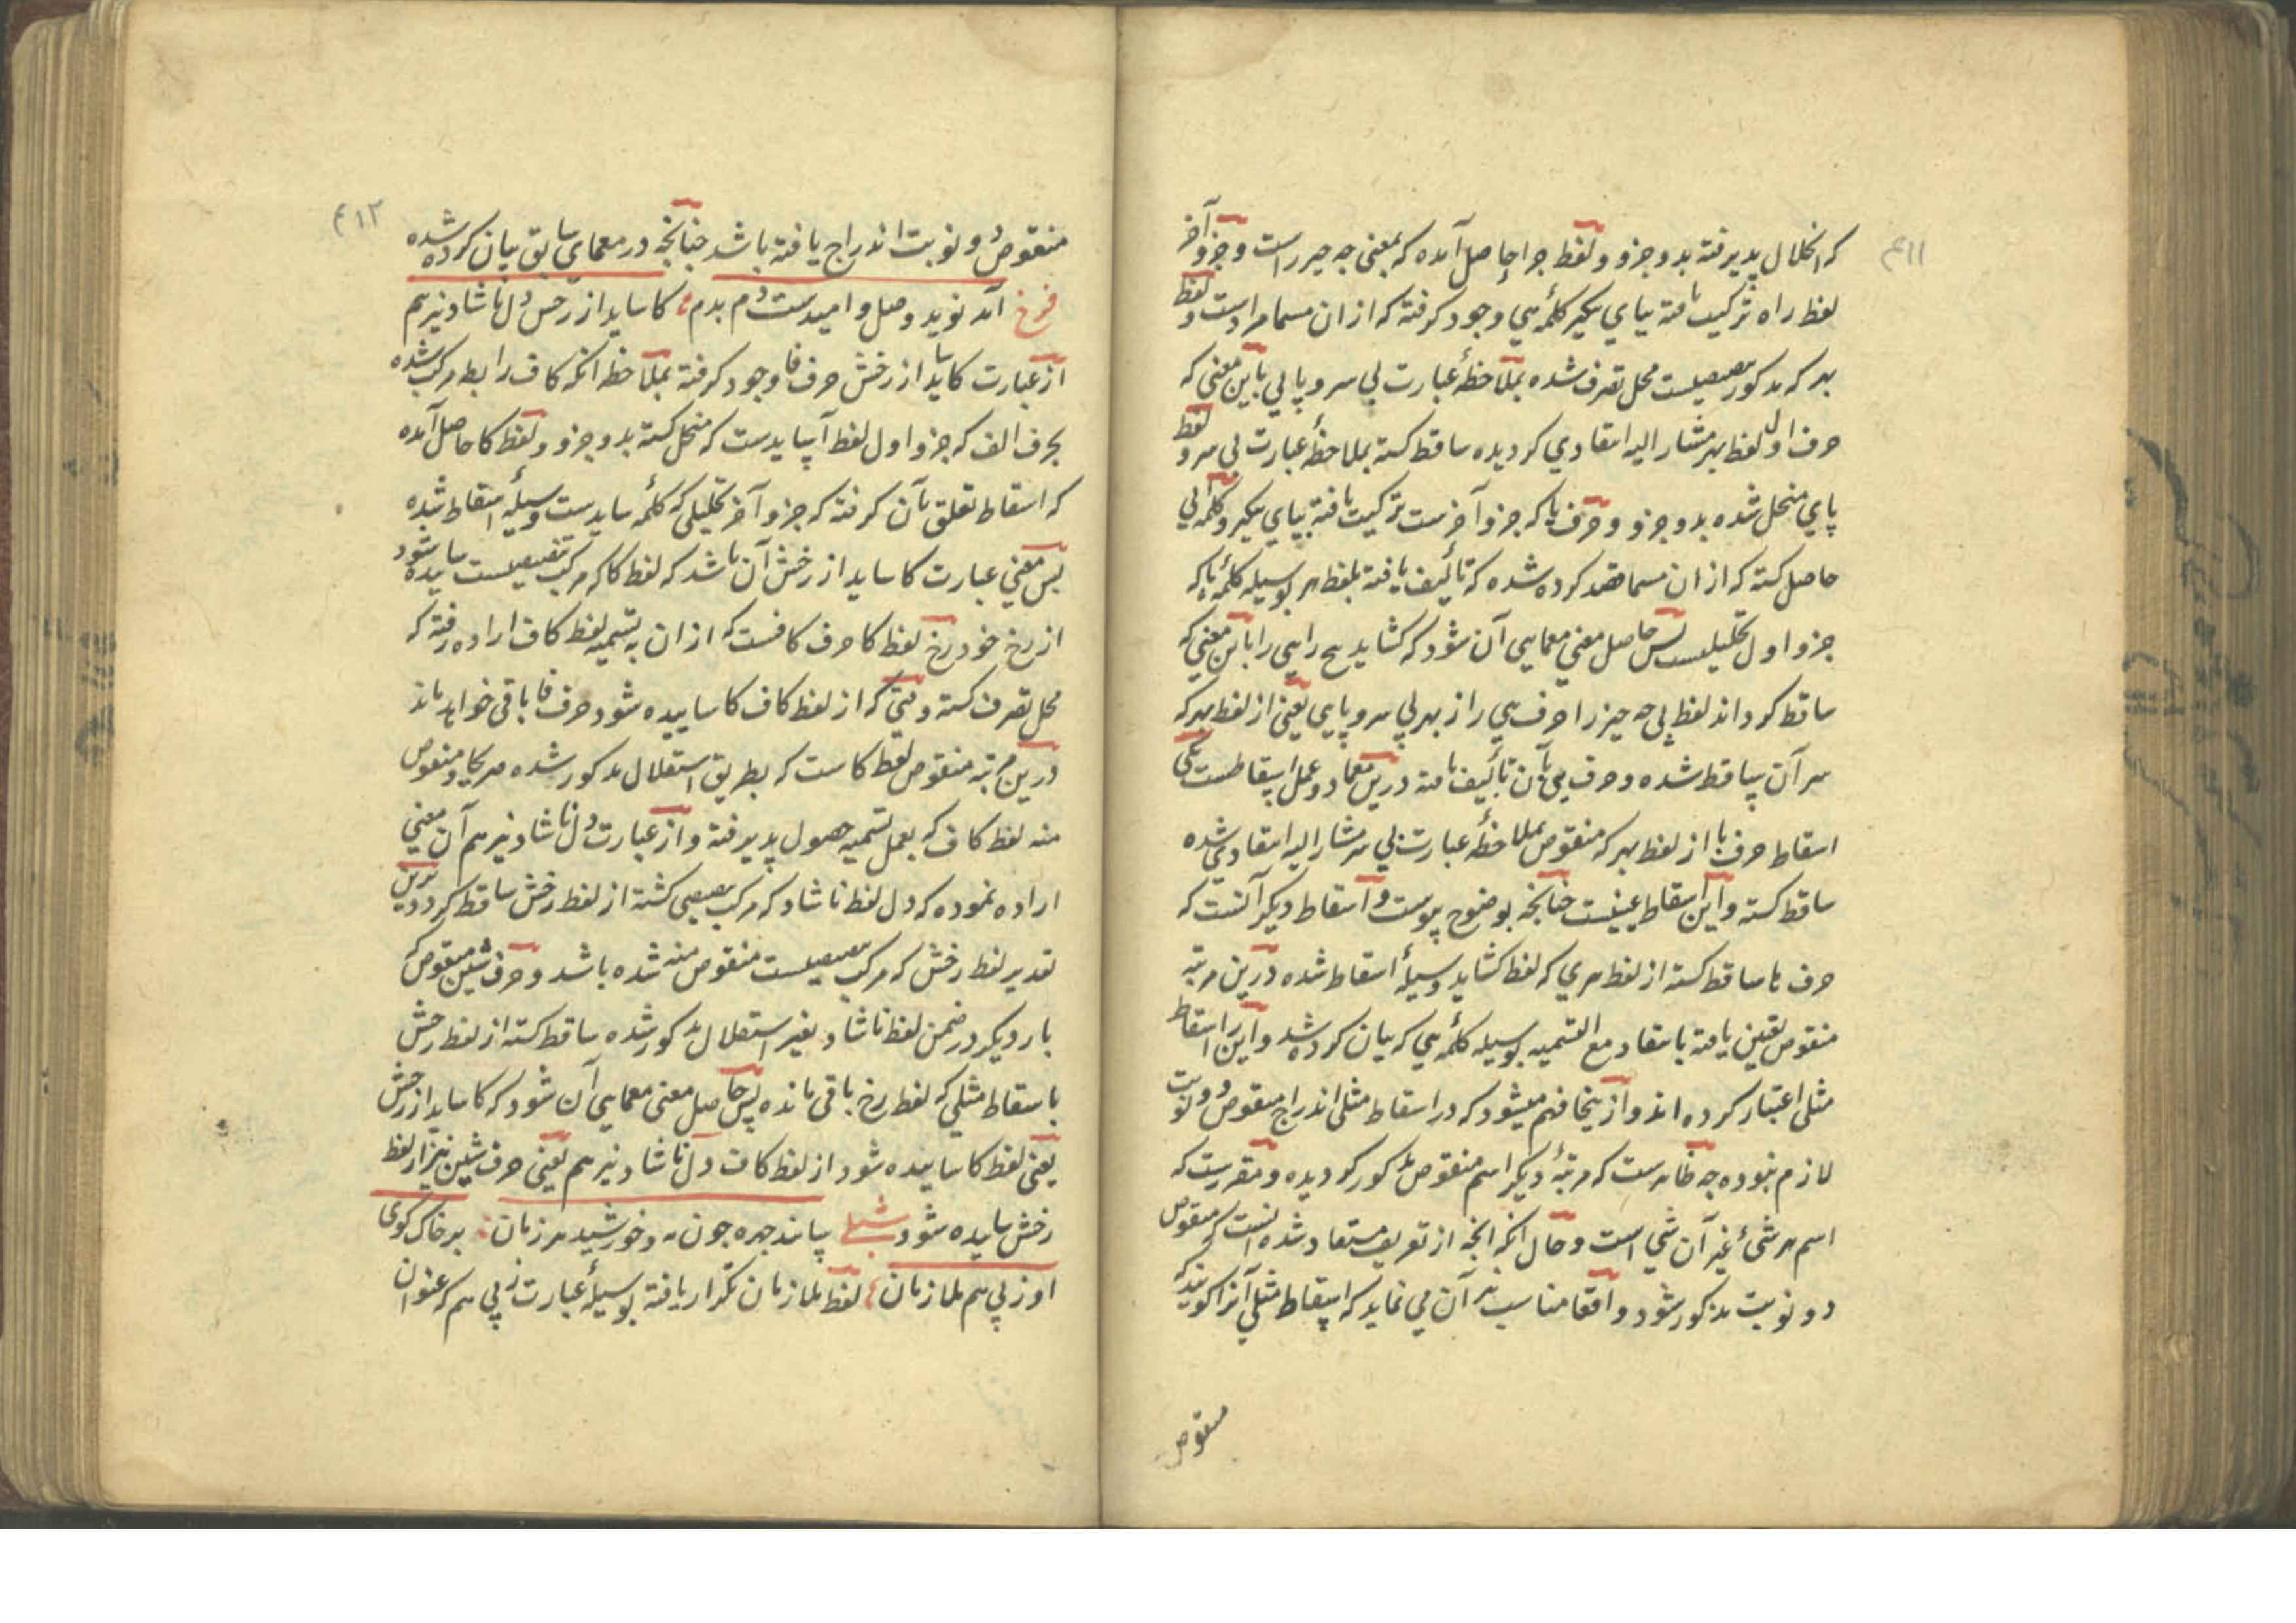 ۴۱۱
که انحلال پذیرفته بدو جزو و لفظ چرا حاصل آمده که بمعنی چه چیر راست و جزو آخر
لفظ راه ترکیب یافته بیای دیکیر کلمهٔ هیی وجود کرفته که ازان مسما مرادست و لفظ
بهر که مذکور محل تصرف شده بملاحظهٔ عبارت بی سر و پایی باین معنی که
حرف اول لفظ بهر مشار الیه انتقادی کردیده ساقط کشته بملاحظهٔ عبارت بی سر و لفظ
پای منحل شده بدو جزو و حرف پا که جزو آخرست ترکیب یافته بیای دیکیر و کلمهٔ بی
حاصل کشته که ازان مسما قصد کرده شده که تألیف یافته بلفظ هر بوسیله کلمهٔ با که
جزو اول تحلیلیست پس حاصل معنی معمایی آن شود که کشاید هیچ راهی را باین معنی که
ساقط کرداند لفظ بی چه چیز را حرف هی را از بهر بی سر و پایی یعنی از لفظ بهر که
سر آن بپا قط شده و حرف بی بآن تألیف یافته درین معما دو عمل اسقاطست یکی
اسقاط حرف با از لفظ بهر که منقوص بملاحظهٔ عبارت بی سر مشار الیه انتقادی شده
ساقط کشته و این اسقاط عینیست چنانچه بوضوح پیوست و اسقاط دیکر آنست که
حرف ها ساقط کشته از لفظ هری که لفظ کشاید وسیلهٔ اسقاط شده درین مرتبه
منقوص تعین یافته بانتقاد مع التسمیه بوسیله کلمهٔ هی که بیان کرده شد و این را اسقاط
مثلی اعتبار کرده اند و ازینجا فهم میشود که در اسقاط مثلی اندراج منقوص دو نوبت
لازم نبوده چه ظاهرست که مرتبهٔ دیکر اسم منقوص مذکور کردیده و مقررست که
اسم هر شیٔ غیر آن شیٔ است و حال آنکه آنچه از تعریف مستفاد شده آنست که منقوص
دو نوبت مذکور شود و اقعا مناسب نیز آن می نماید که اسقاط مثلی آنرا کویند که
منقوص
۴۱۲
منقوص دو نوبت اندراج یافته باشد چنانچه در معمای سابق بیان کرده شده
فرخ آمد نوید وصل و امیدست دم بدم کاساید از رخش دل ناشاد نیز هم
از عبارت کاساید از رخش حرف فا وجود کرفته بملاحظه آنکه کاف رابطه مرکب شده
بحرف الف که جزو اول لفظ آسایدست که منحل کشته بدو جزو و لفظ کا حاصل آمده
که اسقاط تعلق بآن کرفته که جزو آخر تحلیلی که کلمهٔ سایدست وسیلهٔ اسقاط شده
پس معنی عبارت کاساید از رخش آن باشد که لفظ کا که مرکب تنصیصیست ساییده شود
از رخ خود رخ لفظ کا حرف کافست که ازان به تسمیه لفظ کاف اراده رفته که
محل تصرف کشته وقتی که از لفظ کاف کا ساییده شود حرف فا باقی خواهد ماند
درین مرتبه منقوص لفظ کاست که بطریق استقلال مذکور شده صریحا و منقوص
منه لفظ کاف که بعمل تسمیه حصول پذیرفته و از عبارت دل ناشاد نیز هم آن معنی
اراده نموده که دل لفظ ناشاد که مرکب تنصیصی کشته از لفظ رخش ساقط کردد درین
تقدیر لفظ رخش که مرکب تنصیصیست منقوص منه شده باشد و حرف شین منقوص که
بار دیکر در ضمن لفظ ناشاد بغیر استقلال مذکور شده ساقط کشته از لفظ رخش
باسقاط مثلی که لفظ رخ باقی مانده پس حاصل معنی معمایی آن شود که کاساید از رخش
یعنی لفظ کا ساییده شود از لفظ کاف دل ناشاد نیز هم یعنی حرف شین نیز از لفظ
رخش ساییده شود شبلی پیاند چهره چون مه و خورشید هر زمان بر خاک کوی
او ز پی هم ملازمان لفظ ملازمان تکرار یافته بوسیلهٔ عبارت ز پی هم که عنوان